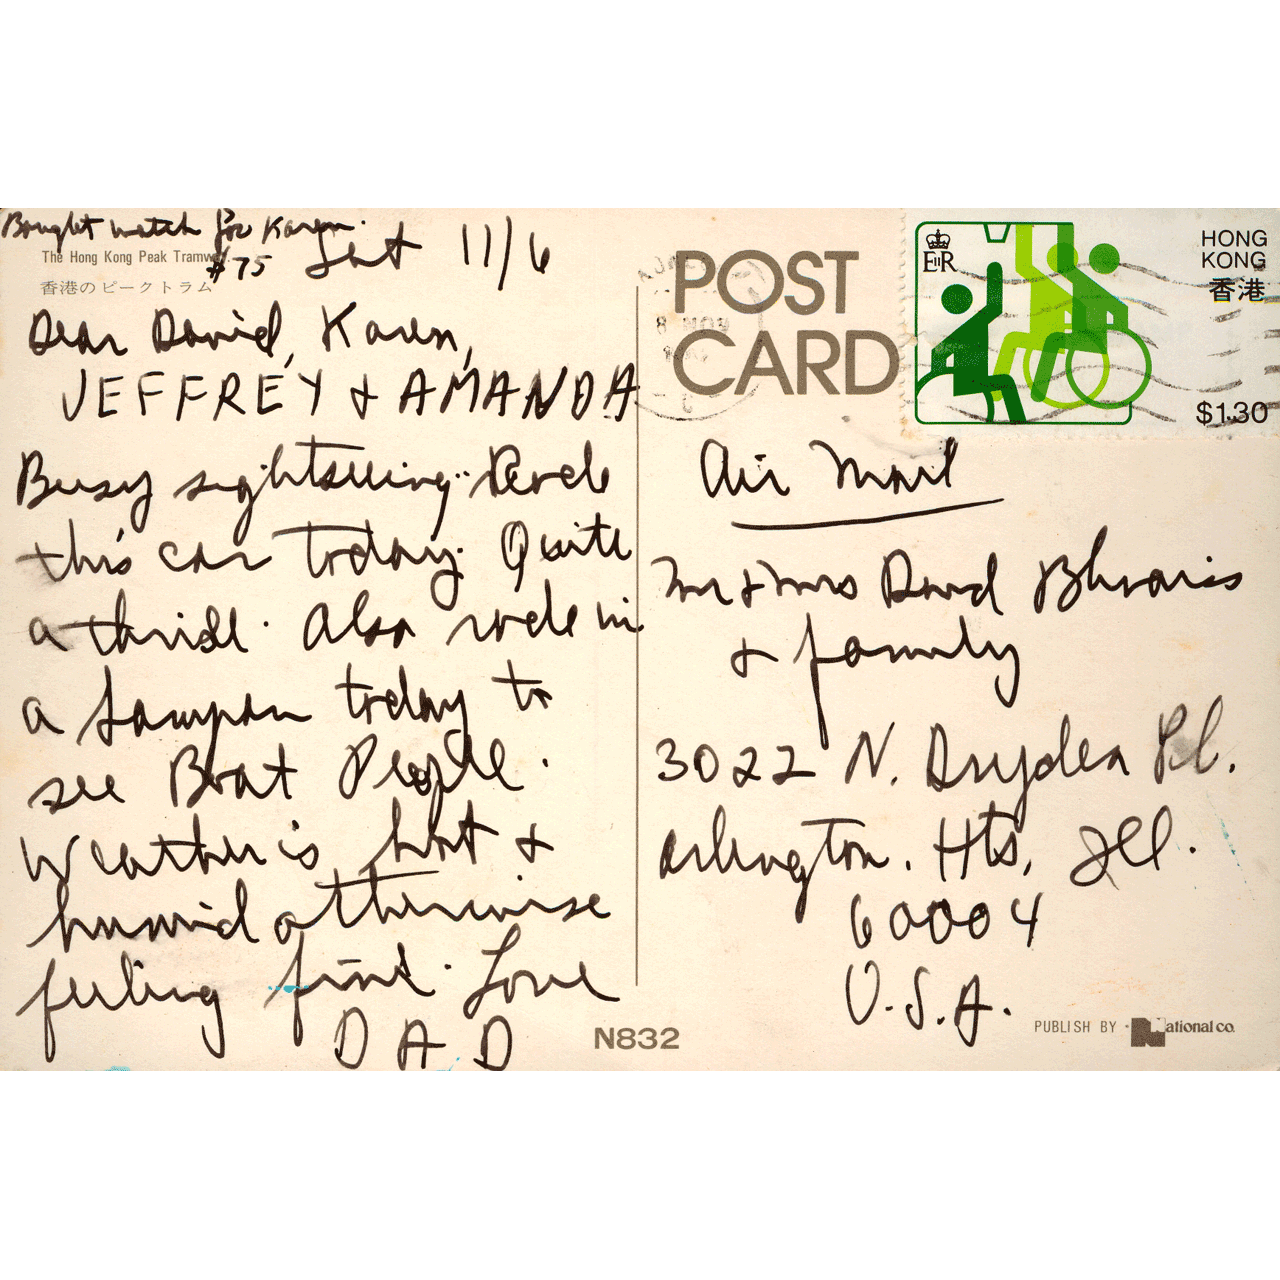 Bought watch for Karen.
The Hong Kong Peak Tramway.
#75 Sat 11/6
香港のピークトラム
Dear David, Karen,
JEFFREY & AMANDA
Busy sightseeing. Rode
this car today. Quite
a thrill. Also rode in
a Sampan today to
see Boat People.
Weather is hot &
humid otherwise
feeling fine. Love
DAD
N832
POST
CARD
HONG
KONG
香港
EIIR
$1.30
Air Mail
Mr & Mrs David
& family
3022 N. Dryden Pl.
Arlington. Hts, Ill.
60004
U.S.A.
PUBLISH BY National co.